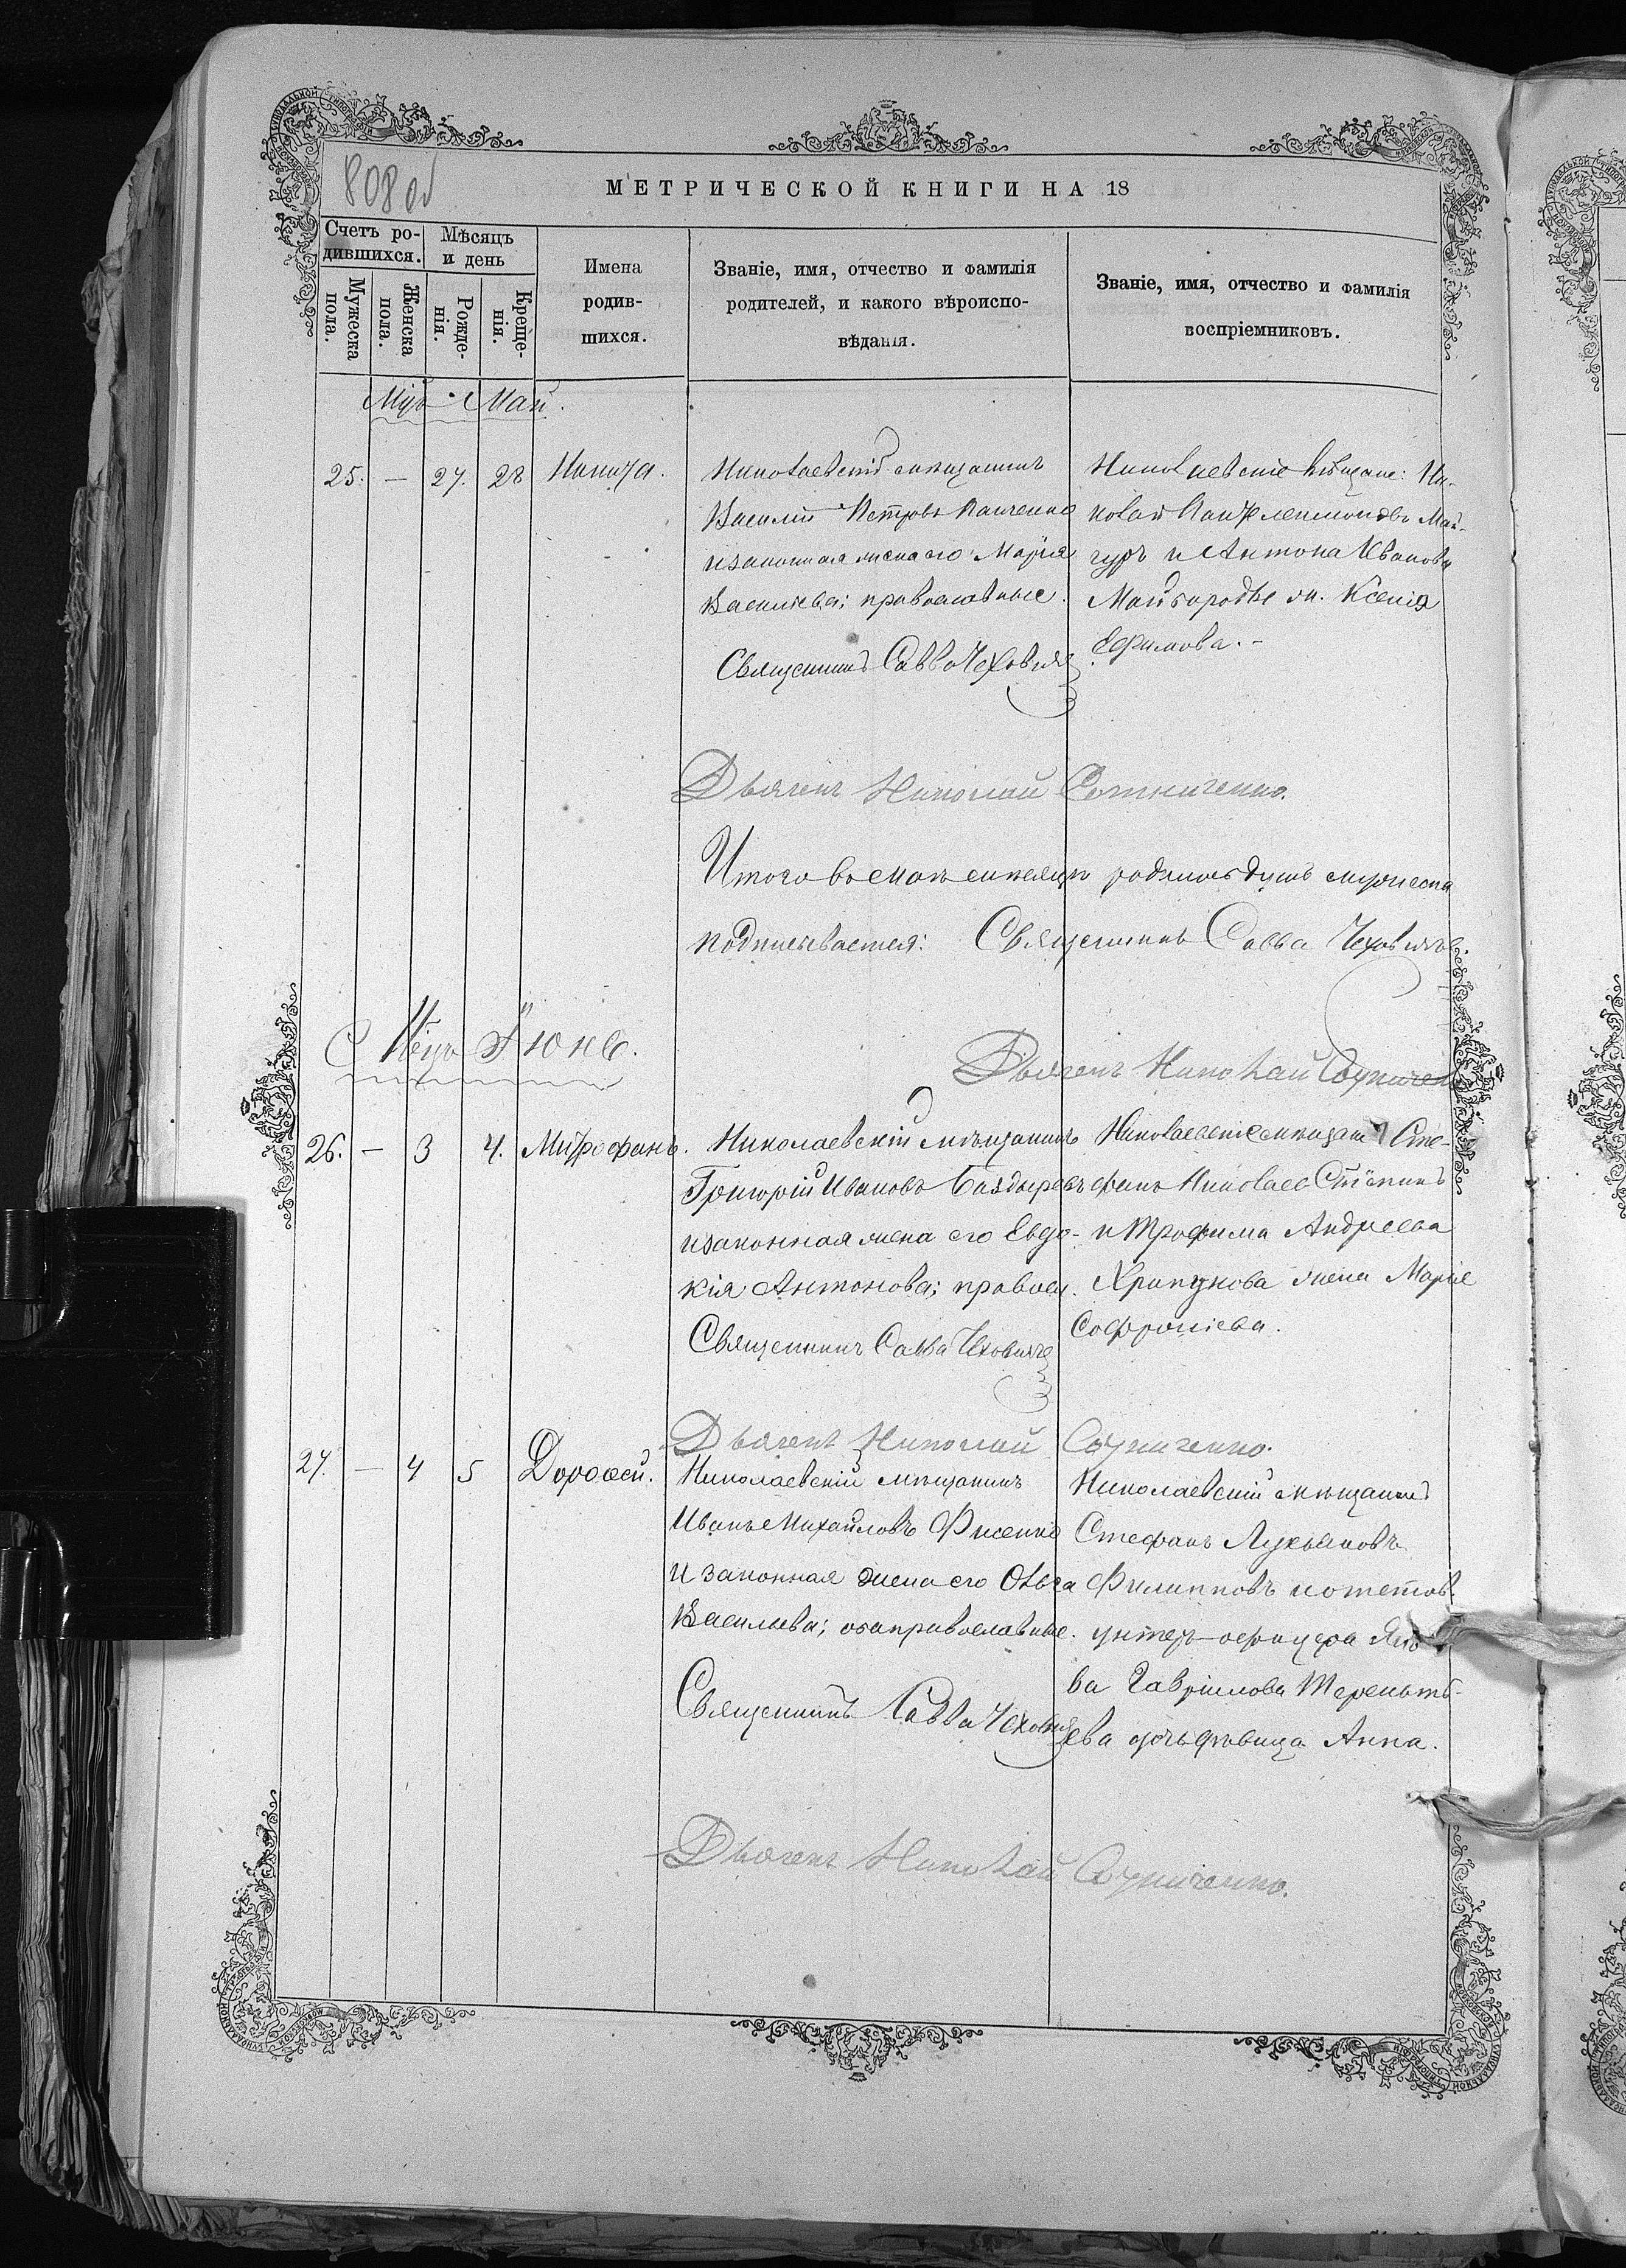 808 об
МЕТРИЧЕСКОЙ КНИГИ НА 18
Счетъ ро-
дившихся.
Мужеска
пола.
Женска
пола.
Мѣсяцъ
и день
Рожде-
нія.
Креще-
нія.
Имена
родив-
шихся.
Званіе, имя, отчество и фамилія
родителей, и какого вѣроиспо-
вѣданія.
Званіе, имя, отчество и фамилія
воспріемниковъ.
Май.
25. — 27. 28 Никита.
Николаевскій мѣщанинъ
Василій Петровъ Панченко
и законная жена его Марія
Васильева; православные.
Священникъ Савва
Николаевскіе мѣщане: Ни-
колай Пантелеимоновъ Май-
гуръ и Антона Иванова
жи. Ксенія
Ефимова. -
Дьяченъ Николай
Итого въ маѣ мѣсяцѣ родилось душъ мужеска
подписывается: Священникъ Савва
Іюнь.
Дьяченъ Николай
26. — 3 4. Митрофанъ.
Николаевскій мѣщанинъ
Григорій Ивановъ Баздыревъ
и законная жена его Евдо-
кія Антонова; правосл.
Священникъ Савва
Николаевскіе мѣщане Сте-
фанъ
и Трофима Андреева
Храпунова жена Марія
Софроніева.
Дьяченъ Николай
27. — 4 5 Дороѳей.
Николаевскій мѣщанинъ
Иванъ Михайловъ Фисенко
и законная жена его Ольга
Васильева; оба православные.
Священникъ Савва
Николаевскій мѣщанинъ
Стефанъ Лукьяновъ
Филипповъ и отстав.
унтеръ-офицера Яко
ва Гавріилова Теренть-
ева дочь дѣвица Анна.
Дьяченъ Николай